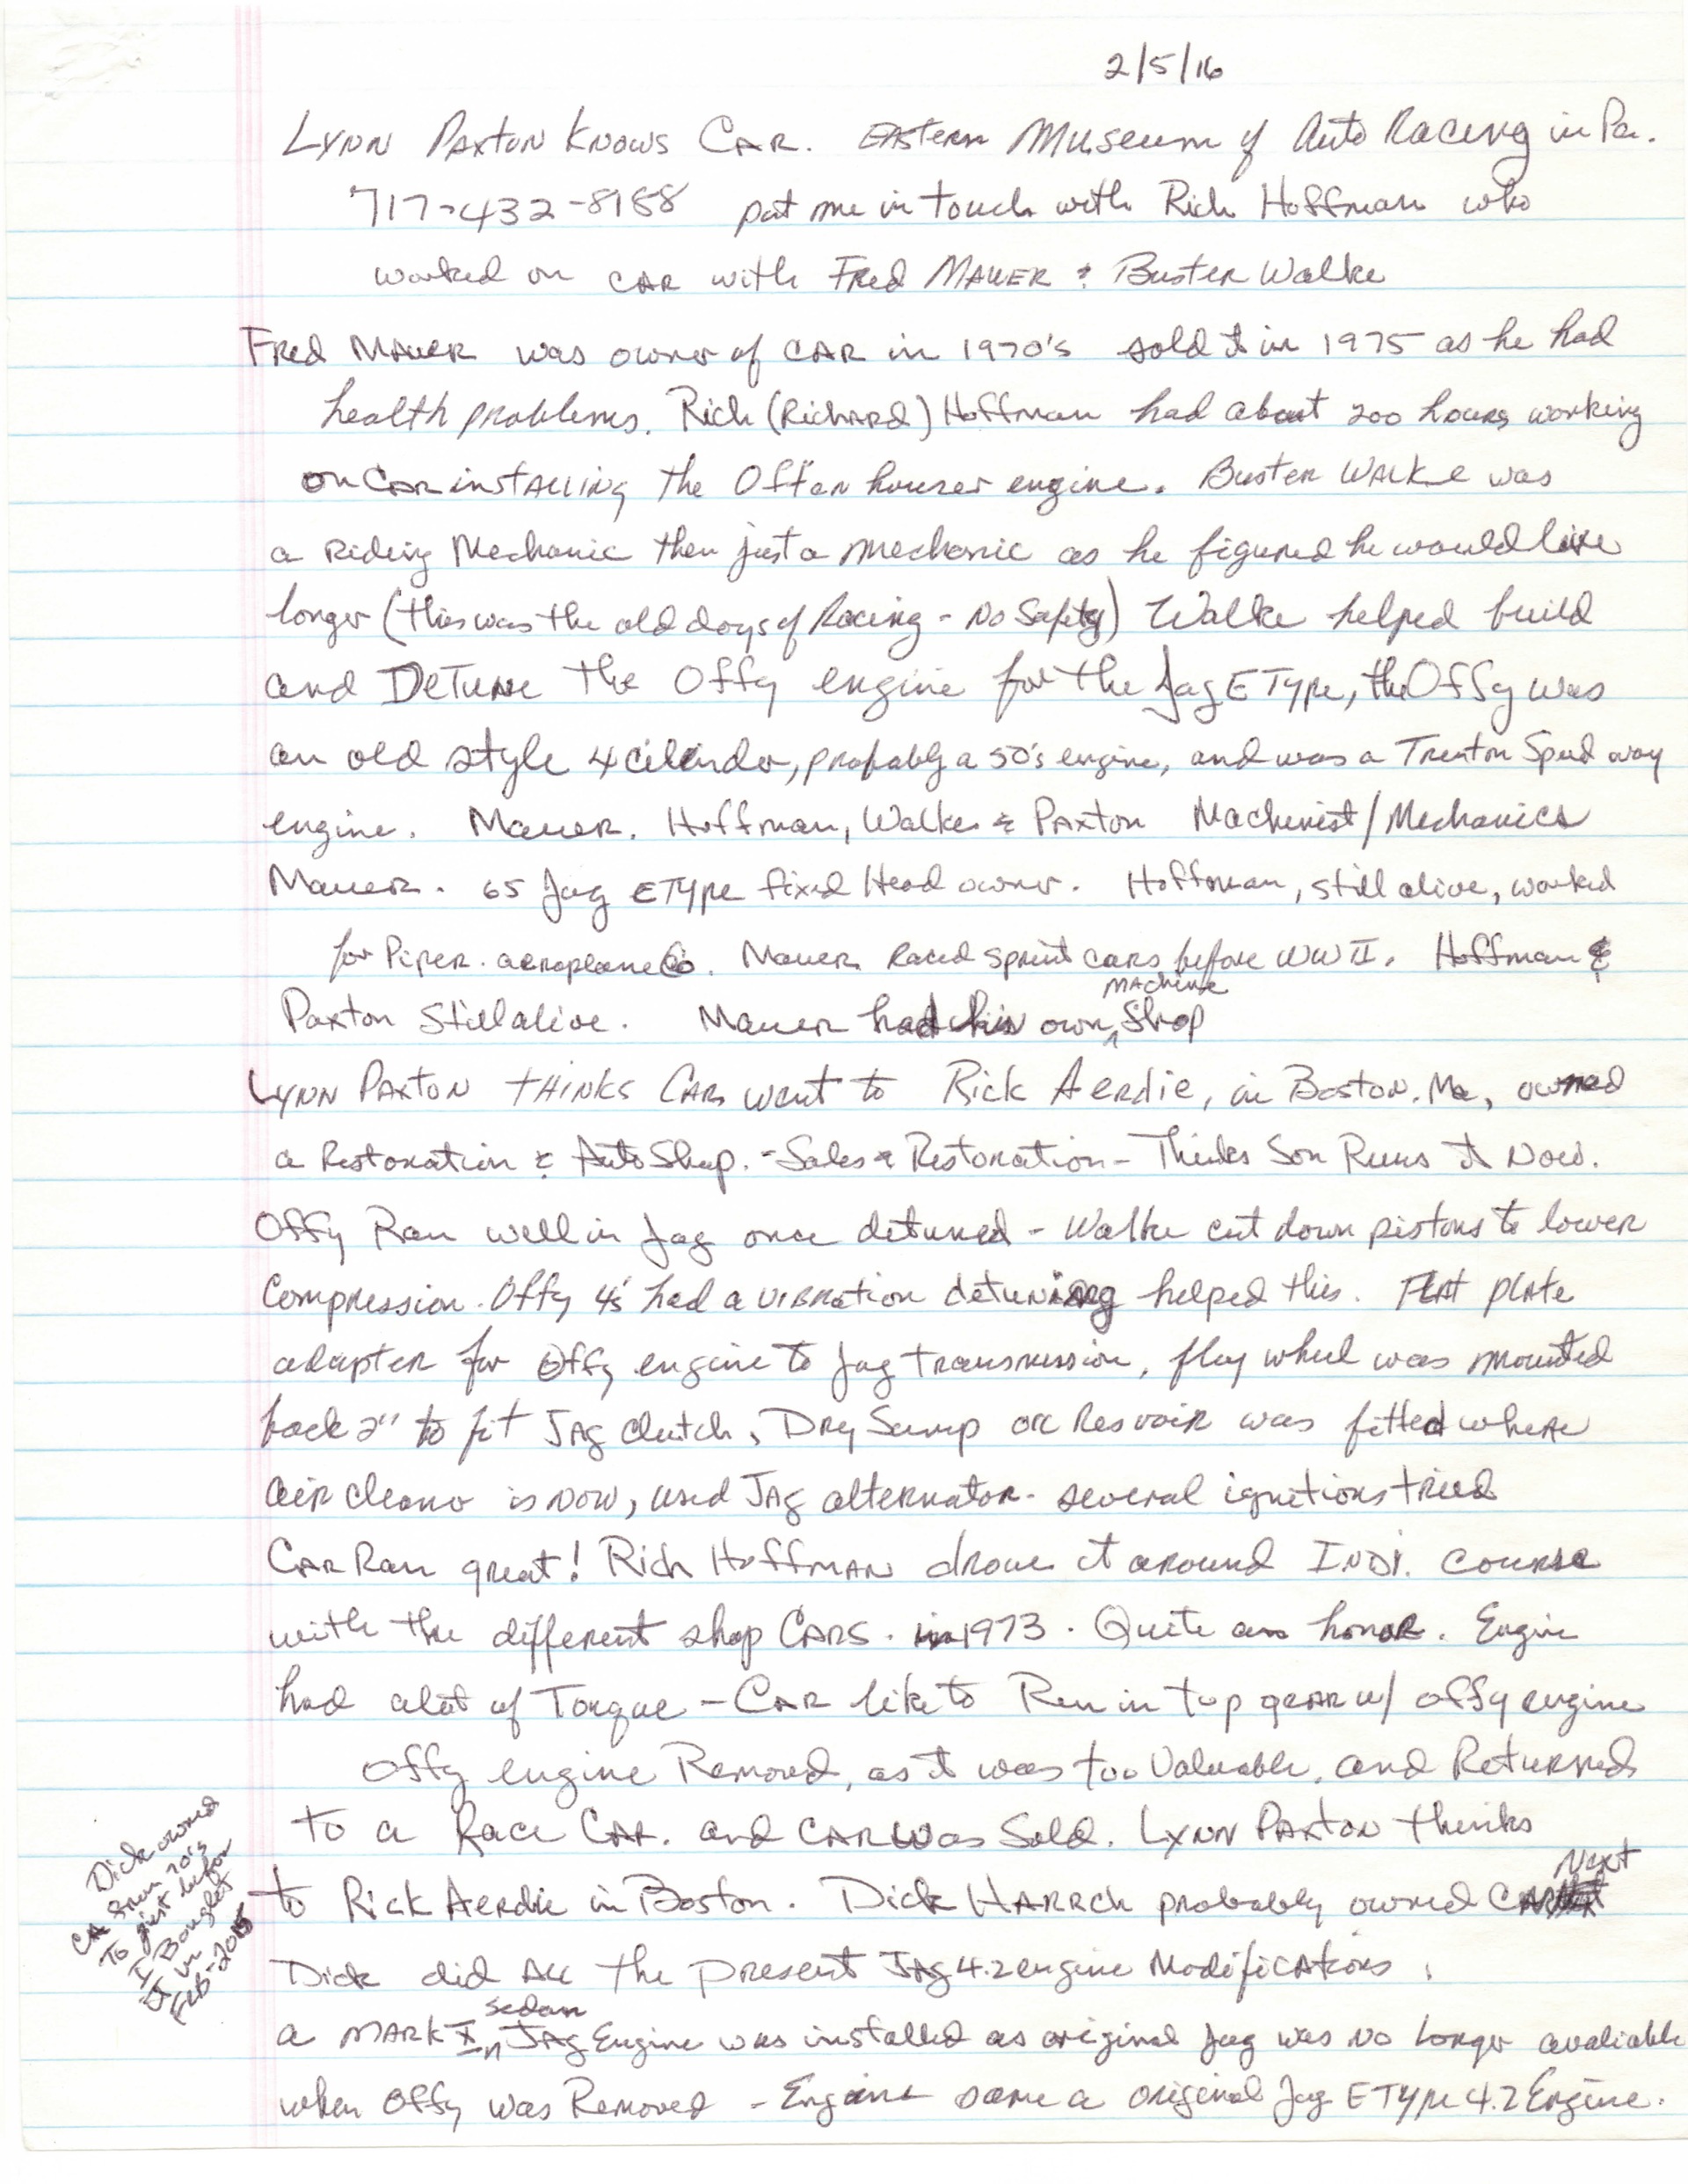 2/5/16
Lynn Paxton knows car. Eastern Museum of Auto Racing in Pa.
717-432-8188 put me in touch with Rich Hoffman who
worked on car with Fred Mauer & Buster Walke
Fred Mauer was owner of car in 1970's sold it in 1975 as he had
health problems. Rich (Richard) Hoffman had about 200 hours working
on car installing the Offenhouser engine. Buster Walke was
a riding mechanic then just a mechanic as he figured he would live
longer (this was the old days of Racing - No Safety) Walke helped build
and DeTune the Offy engine for the Jag E Type, the Offy was
an old style 4 cilinder, probably a 50's engine, and was a Trenton Speed way
engine. Mauer, Hoffman, Walke & Paxton Machinist/Mechanics
Mauer. 65 Jag EType fixed Head owner. Hoffman, still alive, worked
for Piper. aeroplane Co. Mauer Raced sprint cars before WW II. Hoffman &
Paxton Still alive. Mauer had his own machine Shop
Lynn Paxton thinks Car went to Rick Aerdie, in Boston, Ma, owned
a Restoration & Auto Shop. - Sales & Restoration - Thinks Son Runs it Now.
Offy Ran well in Jag once detuned - Walke cut down pistons to lower
Compression. Offy 4's had a vibration detuning helped this. Flat plate
adapter for Offy engine to Jag transmission, fly wheel was mounted
back 2" to fit Jag Clutch, Dry Sump Resvoir was fitted where
air cleaner is now, used Jag alternator - several ignitions tried
Car Ran great! Rich Hoffman drove it around INDI. course
with the different shop cars. in 1973. Quite an honor. Engine
had alot of Torque - Car like to Run in top gear w/ offy engine
Offy engine Removed, as it was too Valuable, and Returned
to a Race Car. and car was Sold. Lynn Paxton thinks
to Rick Aerdie in Boston. Dick Harrch probably owned Car Next
Dick did all the present Jag 4.2 engine Modifications.
a Mark X sedan Jag Engine was installed as original Jag was no longer avaliable
when Offy was Removed - Engine same a original Jag E Type 4.2 Engine.
Dick owned
car from 70's
to just before
I Bought
it in
Feb-2015